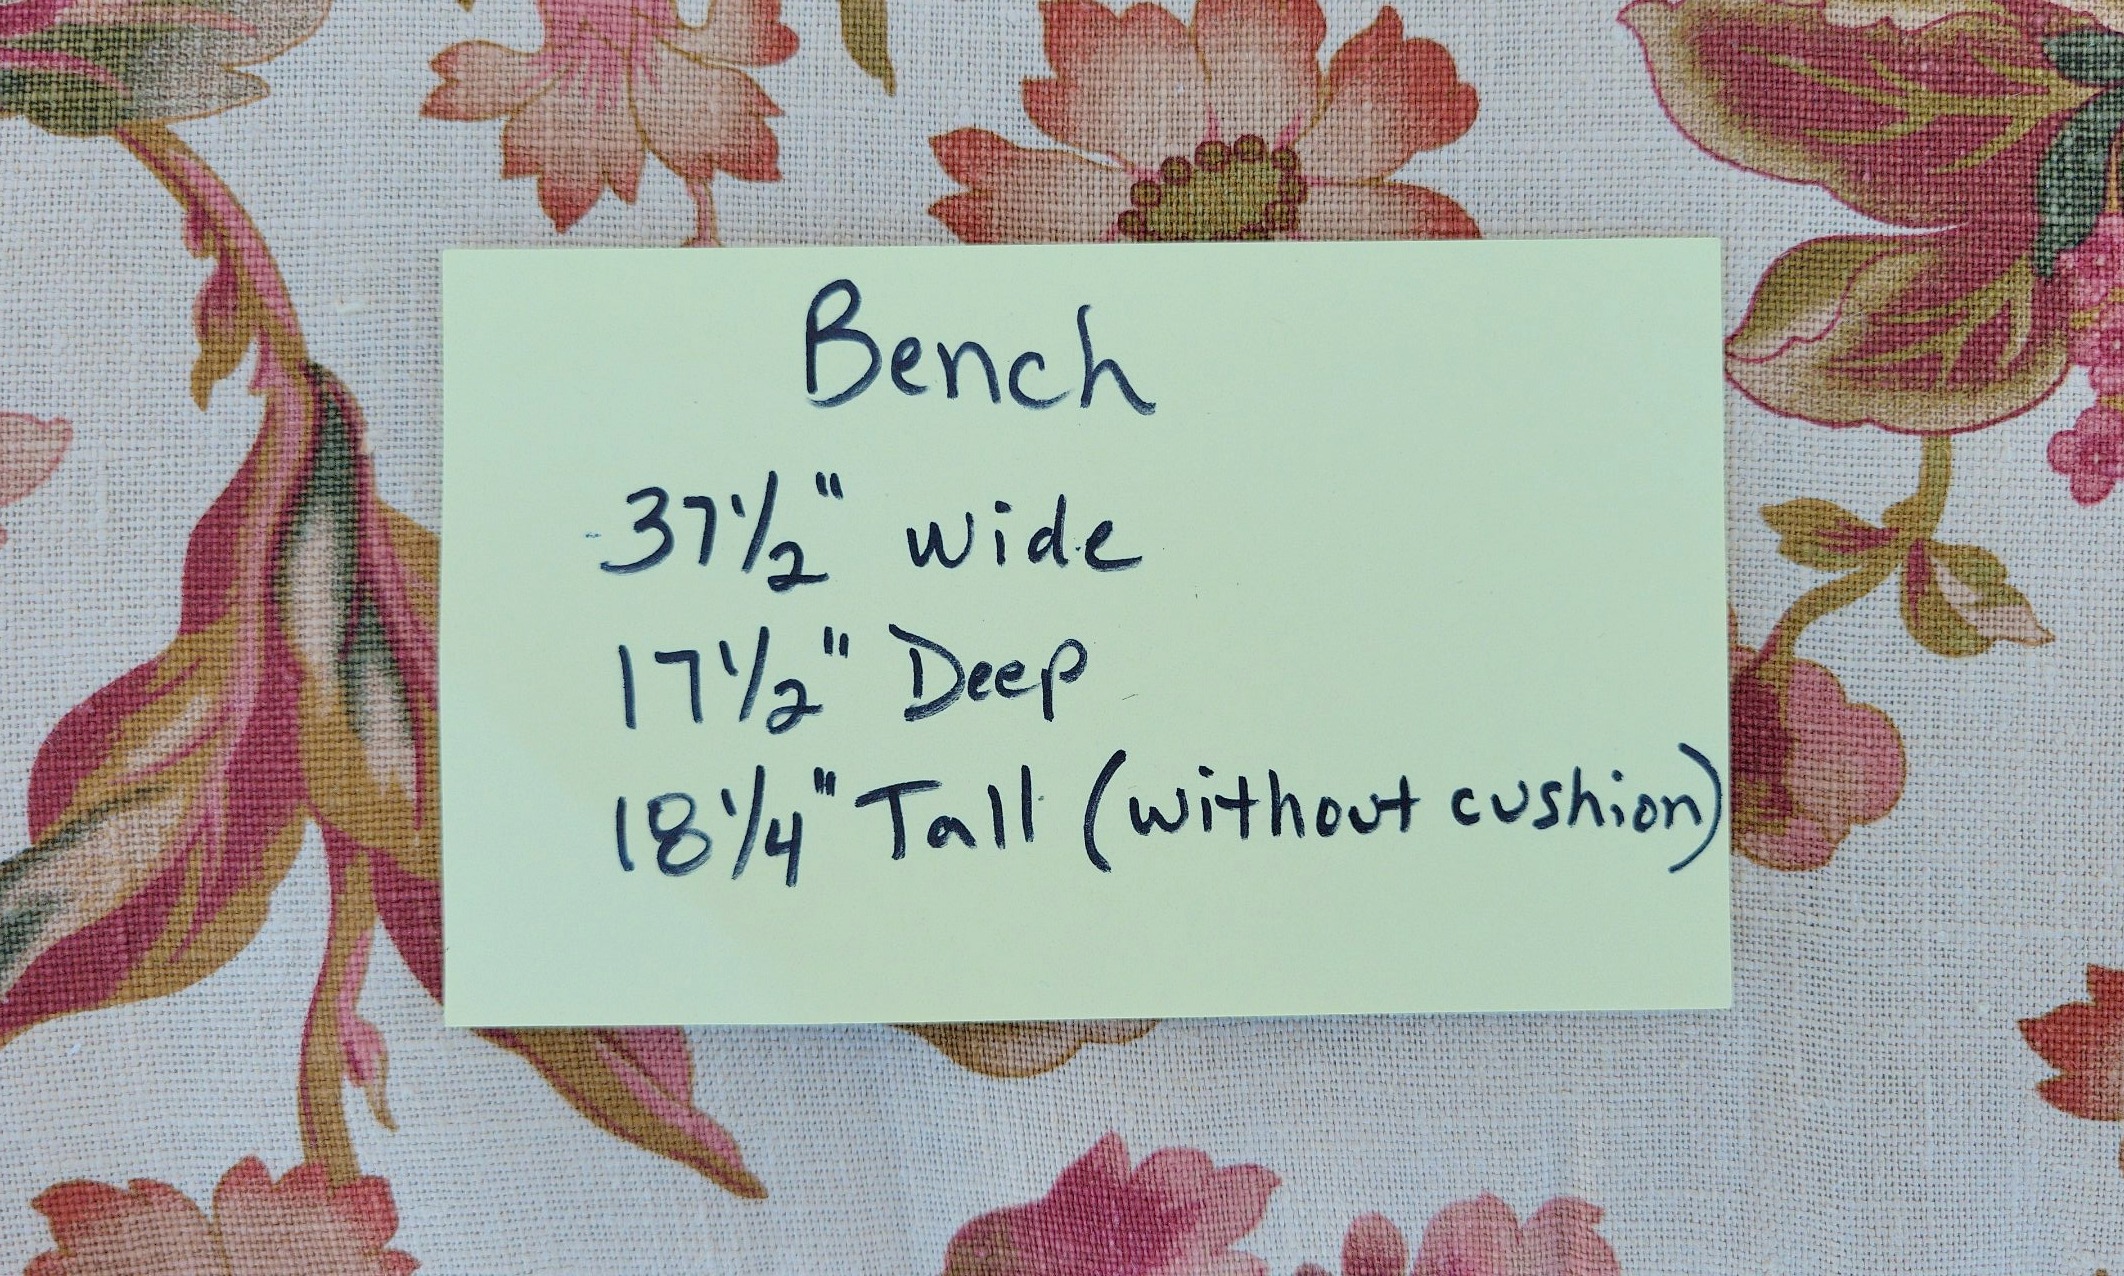 Bench
37 1/2" wide
17 1/2" Deep
18 1/4" Tall (without cushion)